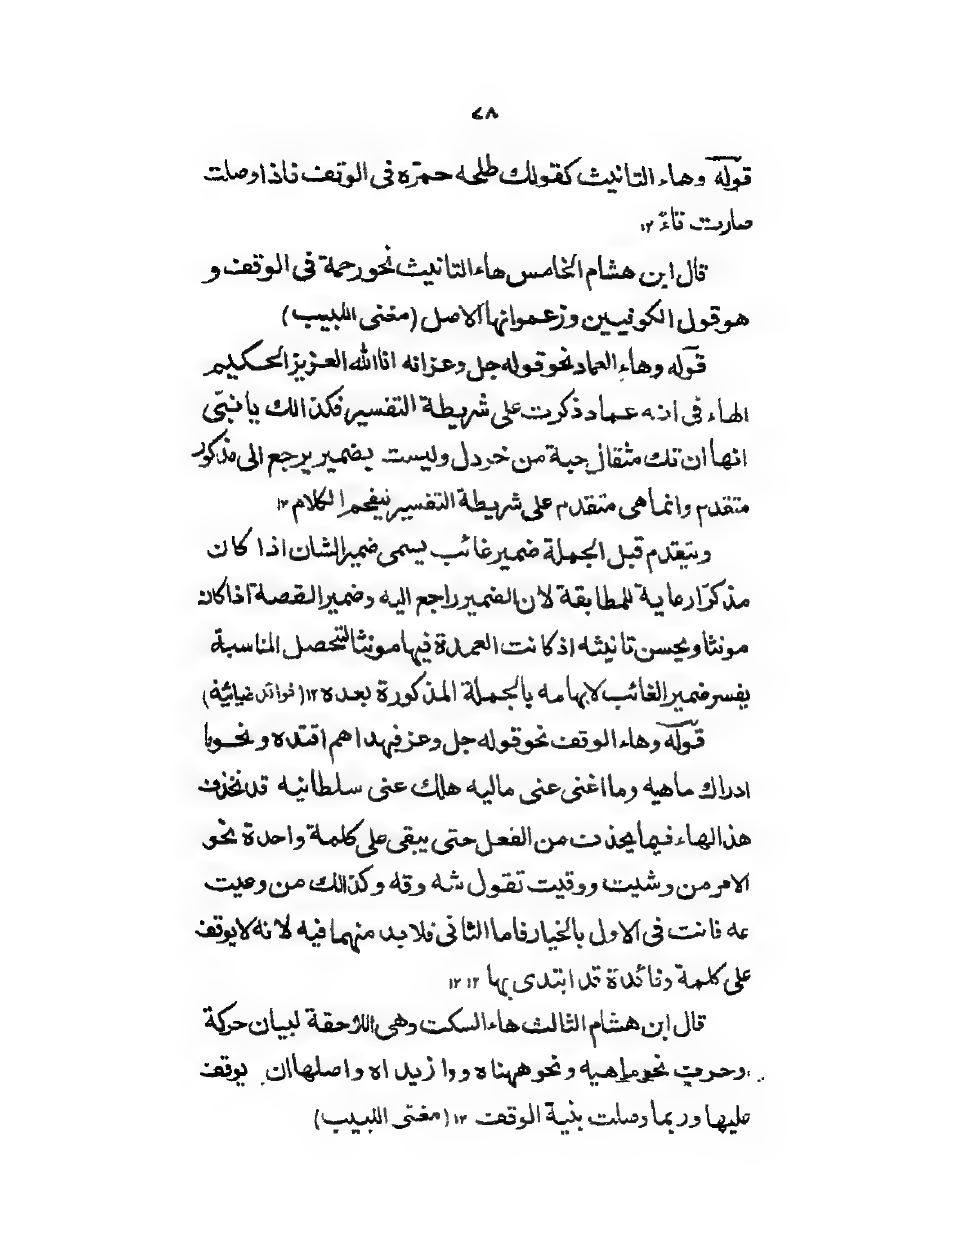 ٤٨
قوله وهاء التانيث كقولك طلحه حمزه فى الوقف فاذا وصلت
صارت تاءً ١٢
قال ابن هشام الخامس هاء التانيث نحو رحمة فى الوقف و
هو قول الكوفيين وزعموا انها الاصل (مغنى اللبيب)
قوله وهاء العماد نحو قوله جل وعز انه انا الله العزيز الحكيم
الهاء فى انه عماد ذكرت على شريطة التفسير فكذالك يا نبىّ
انها ان تك مثقال حبة من خردل وليست بضمير يرجع الى مذكور
متقدم وانما هى متقدم على شريطة التفسير نيفحم الكلام ١٢
ويتقدم قبل الجملة ضمير غائب يسمى ضمير الشان اذا كان
مذكرًا رعاية للمطابقة لان الضمير راجع اليه وضمير القصة اذا كان
مونثا ويحسن تانيثه اذ كانت العمدة فيها مونثا لتحصل المناسبة
يفسر ضمير الغائب لابهامه بالجملة المذكورة بعده ١٢ (فوائد غيائية)
قوله وهاء الوقف نحو قوله جل وعز فبهداهم اقتده و نحو با
ادراك ماهيه وما اغنى عنى ماليه هلك عنى سلطانيه قد تحذف
هذا الهاء فيما يحذف من الفعل حتى يبقى على كلمة واحدة نحو
الامر من وشيت ووقيت تقول شه وقه وكذالك من وعيت
عه فانت فى الاول بالخيار فاما الثانى فلابد منهما فيه لانه لا يوقف
على كلمة وفائدة قد ابتدى بها ١٢ ١٢
قال ابن هشام الثالث هاء السكت وهى اللاحقة لبيان حركة
وحرف نحو ماهيه و نحو ههناه و وا زيداه واصلها ان يوقف
عليها وربما وصلت بنية الوقف ١٢ (مغنى اللبيب)